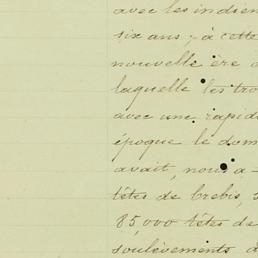 avec les indien
six ans ; à cette
nouvelle ère d
laquelle les tro
avec une rapid
époque le dom
avait, nous a-
têtes de brebis, 
85,000 têtes de
soulèvements d